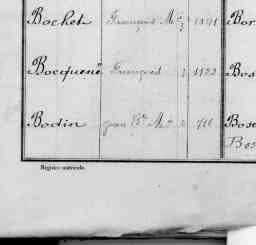 Bochet François M 1841 Bor
Bocquené François 1132 Bos
Bodin jean Bte Me 711 Bose
Bos
Registre matricule.